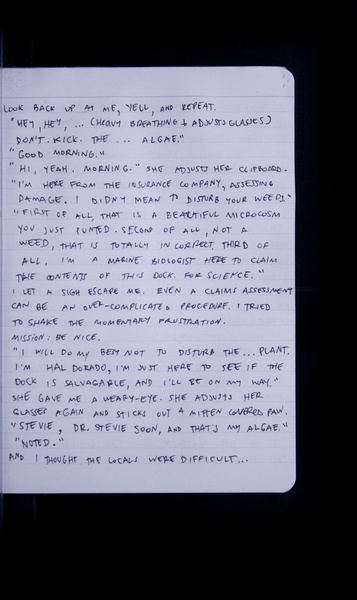 LOOK BACK UP AT ME, YELL, AND REPEAT.
"HEY, HEY, ... (HEAVY BREATHING & ADJUSTS GLASSES)
DON'T. KICK. THE ... ALGAE."
"GOOD MORNING."
"HI, YEAH. MORNING." SHE ADJUSTS HER CLIPBOARD.
"I'M HERE FROM THE INSURANCE COMPANY, ASSESSING
DAMAGE. I DIDN'T MEAN TO DISTURB YOUR WEEDS."
"FIRST OF ALL, THAT IS A BEAUTIFUL MICROCOSM
YOU JUST PUNTED. SECOND OF ALL, NOT A
WEED, THAT IS TOTALLY INCORRECT. THIRD OF
ALL, I'M A MARINE BIOLOGIST HERE TO CLAIM
THE CONTENTS OF THIS DOCK. FOR SCIENCE."
I LET A SIGH ESCAPE ME. EVEN A CLAIMS ASSESSMENT
CAN BE AN OVER-COMPLICATED PROCEDURE. I TRIED
TO SHAKE THE MOMENTARY FRUSTRATION.
MISSION: BE NICE.
"I WILL DO MY BEST NOT TO DISTURB THE... PLANT.
I'M HAL DORADO, I'M JUST HERE TO SEE IF THE
DOCK IS SALVAGABLE, AND I'LL BE ON MY WAY."
SHE GAVE ME A WEARY-EYE. SHE ADJUSTS HER
GLASSES AGAIN AND STICKS OUT A MITTEN COVERED PAW.
"STEVIE, DR. STEVIE SOON, AND THAT'S MY ALGAE."
"NOTED."
AND I THOUGHT THE LOCALS WERE DIFFICULT...